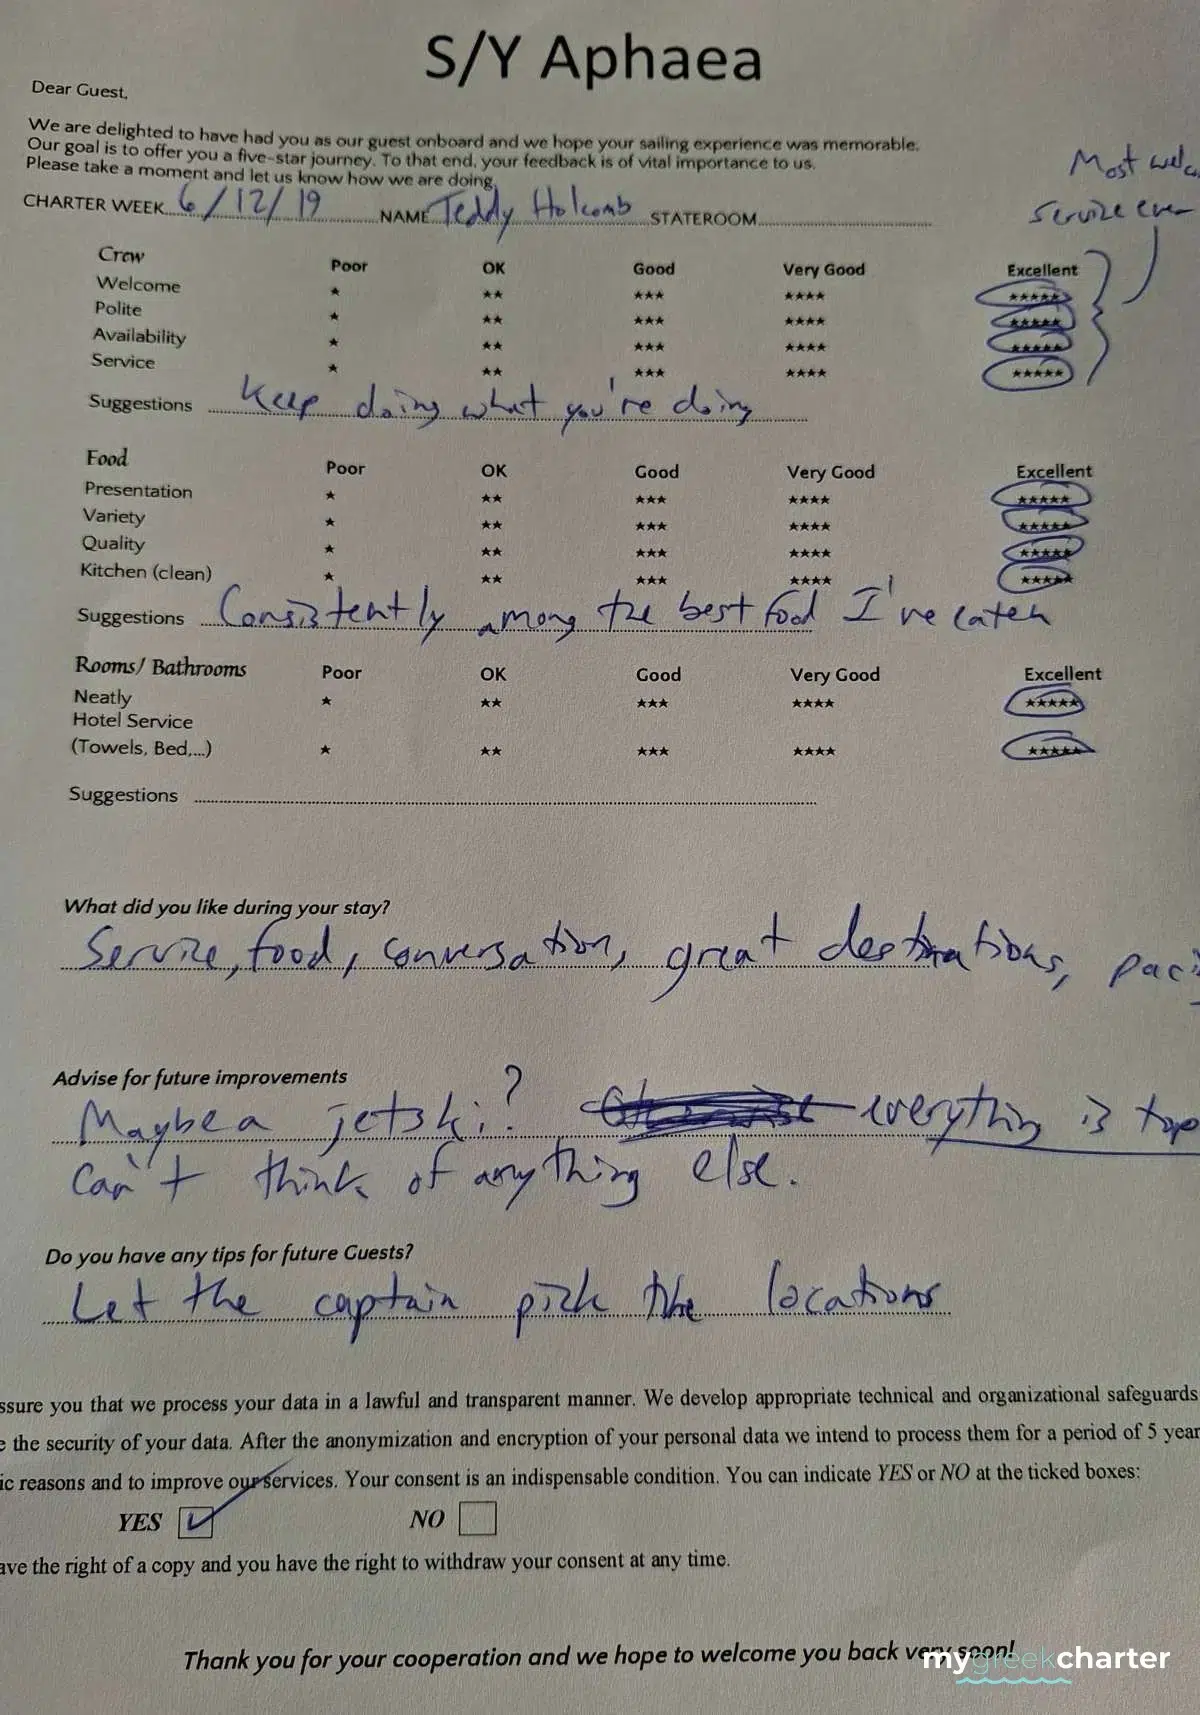 S/Y Aphaea
Dear Guest,
We are delighted to have had you as our guest onboard and we hope your sailing experience was memorable.
Our goal is to offer you a five-star journey. To that end, your feedback is of vital importance to us.
Please take a moment and let us know how we are doing.
Most
service ever
CHARTER WEEK 6/12/19 NAME Teddy Holcomb STATEROOM
Crew Poor OK Good Very Good Excellent
Welcome ★ ★★ ★★★ ★★★★ ★★★★★
Polite ★ ★★ ★★★ ★★★★ ★★★★★
Availability ★ ★★ ★★★ ★★★★ ★★★★★
Service ★ ★★ ★★★ ★★★★ ★★★★★
Suggestions Keep doing what you're doing
Food Poor OK Good Very Good Excellent
Presentation ★ ★★ ★★★ ★★★★ ★★★★★
Variety ★ ★★ ★★★ ★★★★ ★★★★★
Quality ★ ★★ ★★★ ★★★★ ★★★★★
Kitchen (clean) ★ ★★ ★★★ ★★★★ ★★★★★
Suggestions Consistently among the best food I've eaten
Rooms/ Bathrooms Poor OK Good Very Good Excellent
Neatly ★ ★★ ★★★ ★★★★ ★★★★★
Hotel Service
(Towels, Bed,...) ★ ★★ ★★★ ★★★★ ★★★★★
Suggestions
What did you like during your stay?
Service, food, conversation, great destinations,
Advise for future improvements
Maybe a jetski? everything is top
can't think of anything else.
Do you have any tips for future Guests?
Let the captain pick the locations
ssure you that we process your data in a lawful and transparent manner. We develop appropriate technical and organizational safeguards
e the security of your data. After the anonymization and encryption of your personal data we intend to process them for a period of 5 year
ic reasons and to improve our services. Your consent is an indispensable condition. You can indicate YES or NO at the ticked boxes:
YES NO
ave the right of a copy and you have the right to withdraw your consent at any time.
Thank you for your cooperation and we hope to welcome you back very soon!
mygreekcharter